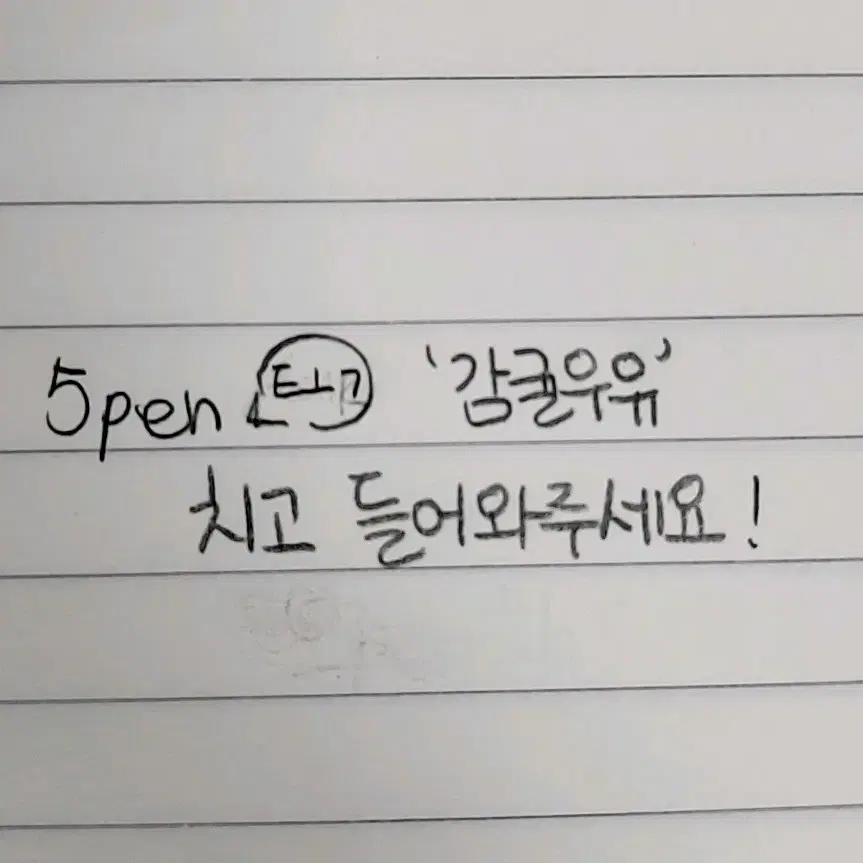 5pen ㅌㅗㄱ '감귤우유'
치고 들어와주세요!